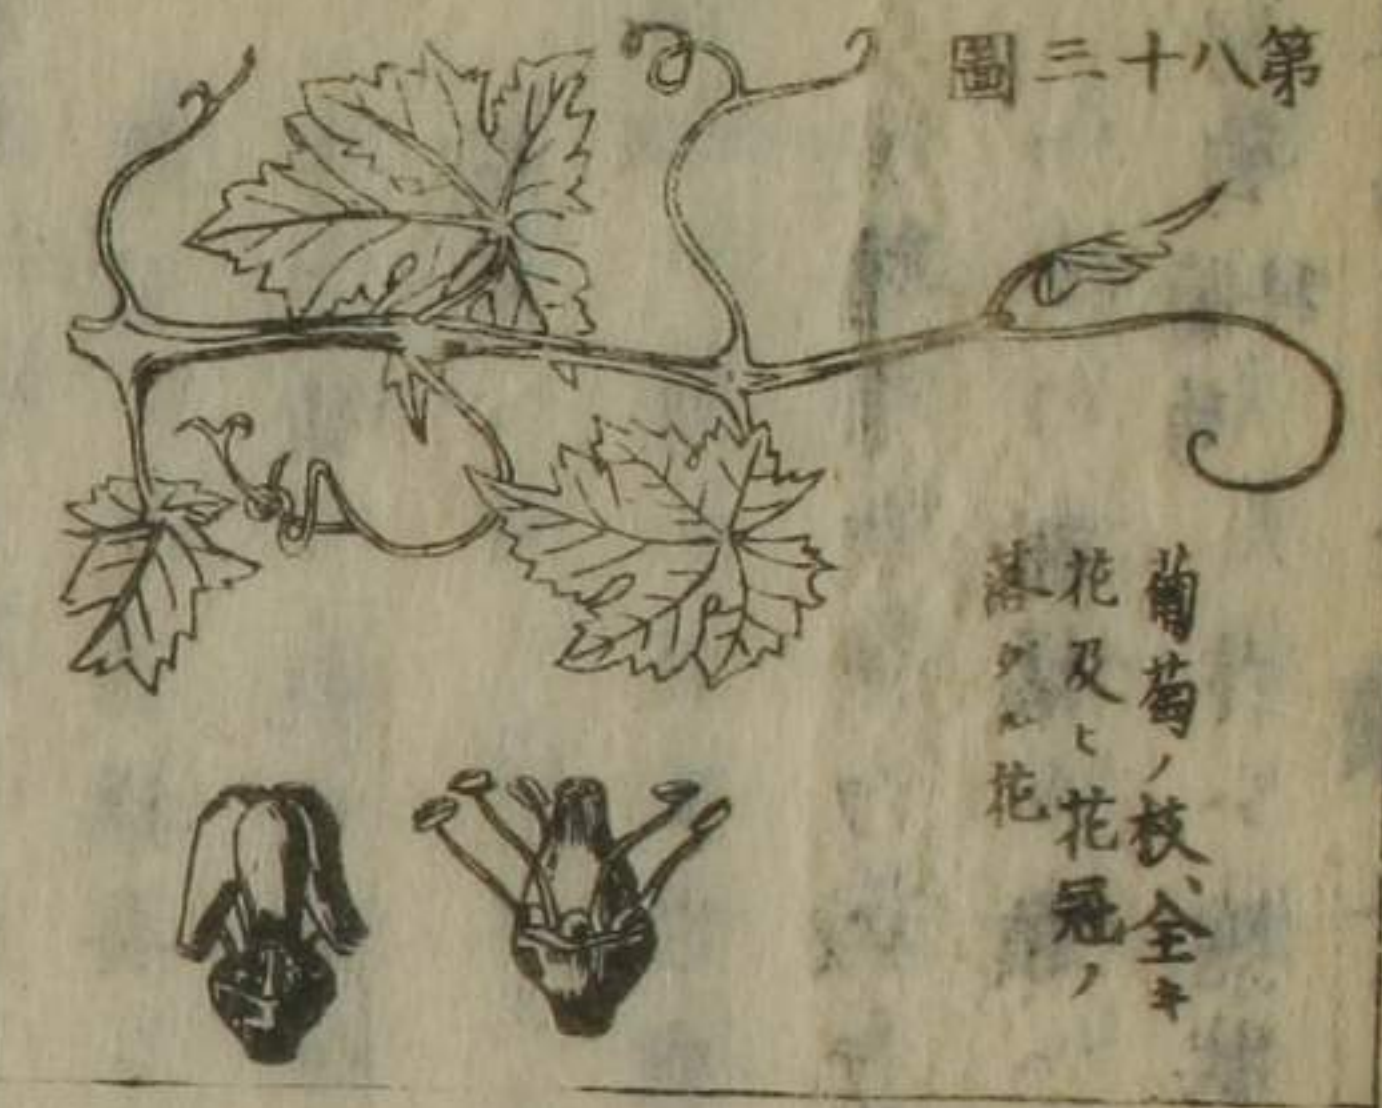 第八十三圖
葡萄ノ枝、全キ
花及ヒ花冠ノ
落タル花